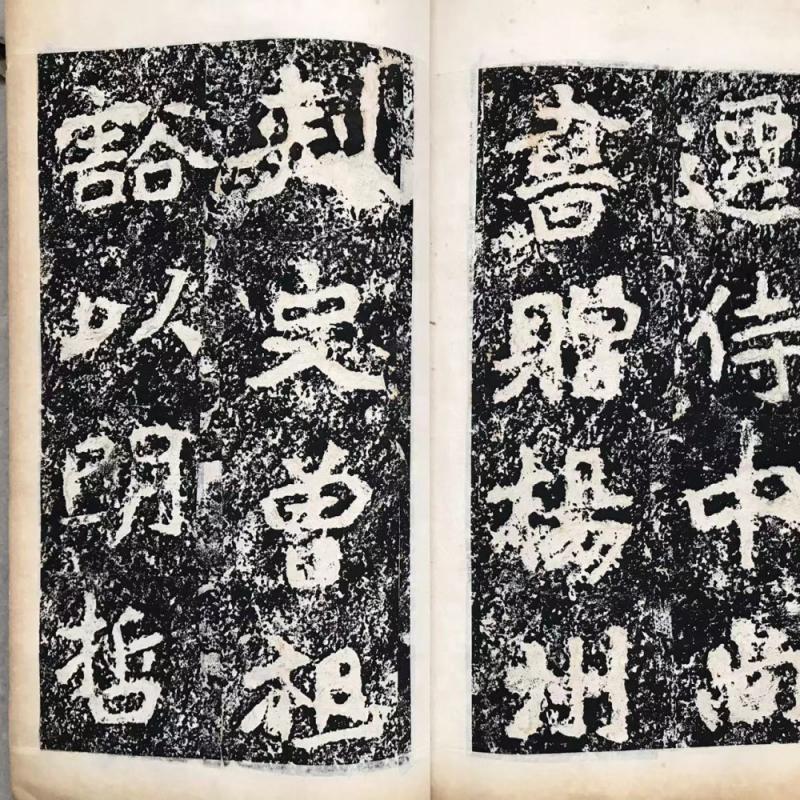 遷侍中尚
書贈楊州
刺史曾祖
豁以明哲